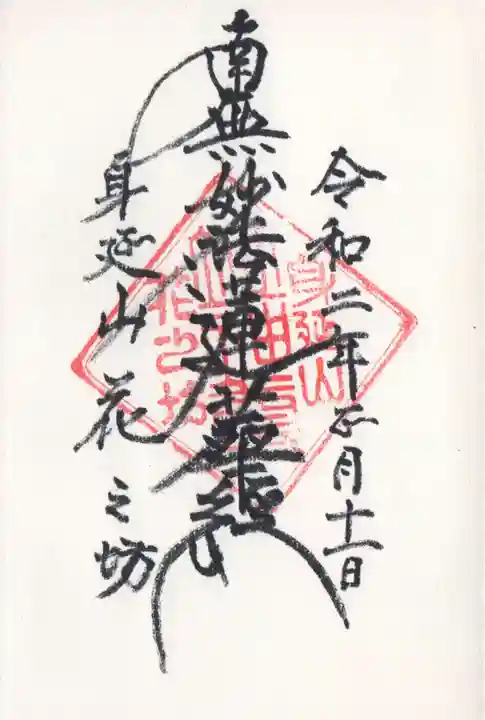 令和二年正月十一日
南無妙法蓮華経
身延山花之坊